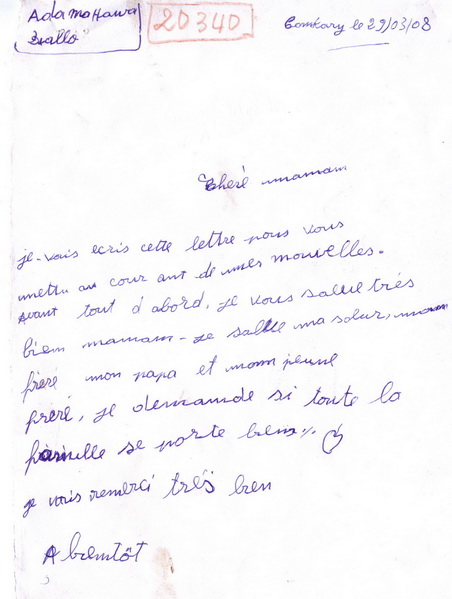 Adama Hawa
Diallo
20340
Comkary le 29/03/08
Cheré mamam
je-vais ecris cette lettre pous vous
mettu au cour ant de mes nouvelles.
Avant tout d abord, je vous salue très
biem mamam - je salue ma sœur, mom
freré mon papa et mom jeune
freré, je demamde si toute la
famille se porte biem
je vous remerci très bien
A biemtôt